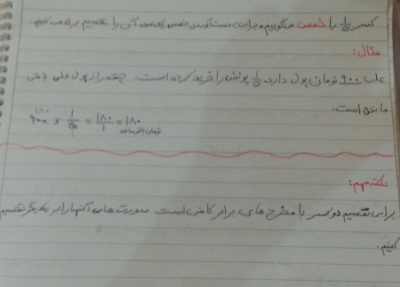 کسر ۱/۵ را خمس می‌گوییم و برای بدست آوردن خمس هر عدد آن را تقسیم بر ۵ می‌کنیم.
مثال:
علی ۹۰۰ تومان پول دارد. ۱/۵ پولش را خرید کرده است. چقدر از پول علی باقی
مانده است.
۹۰۰ × ۱/۵ = ۱۸۰/۱ = ۱۸۰
نکته مهم:
برای تقسیم دو کسر با مخرج های برابر کافی است صورت های آنها را بر یکدیگر تقسیم
کنیم.